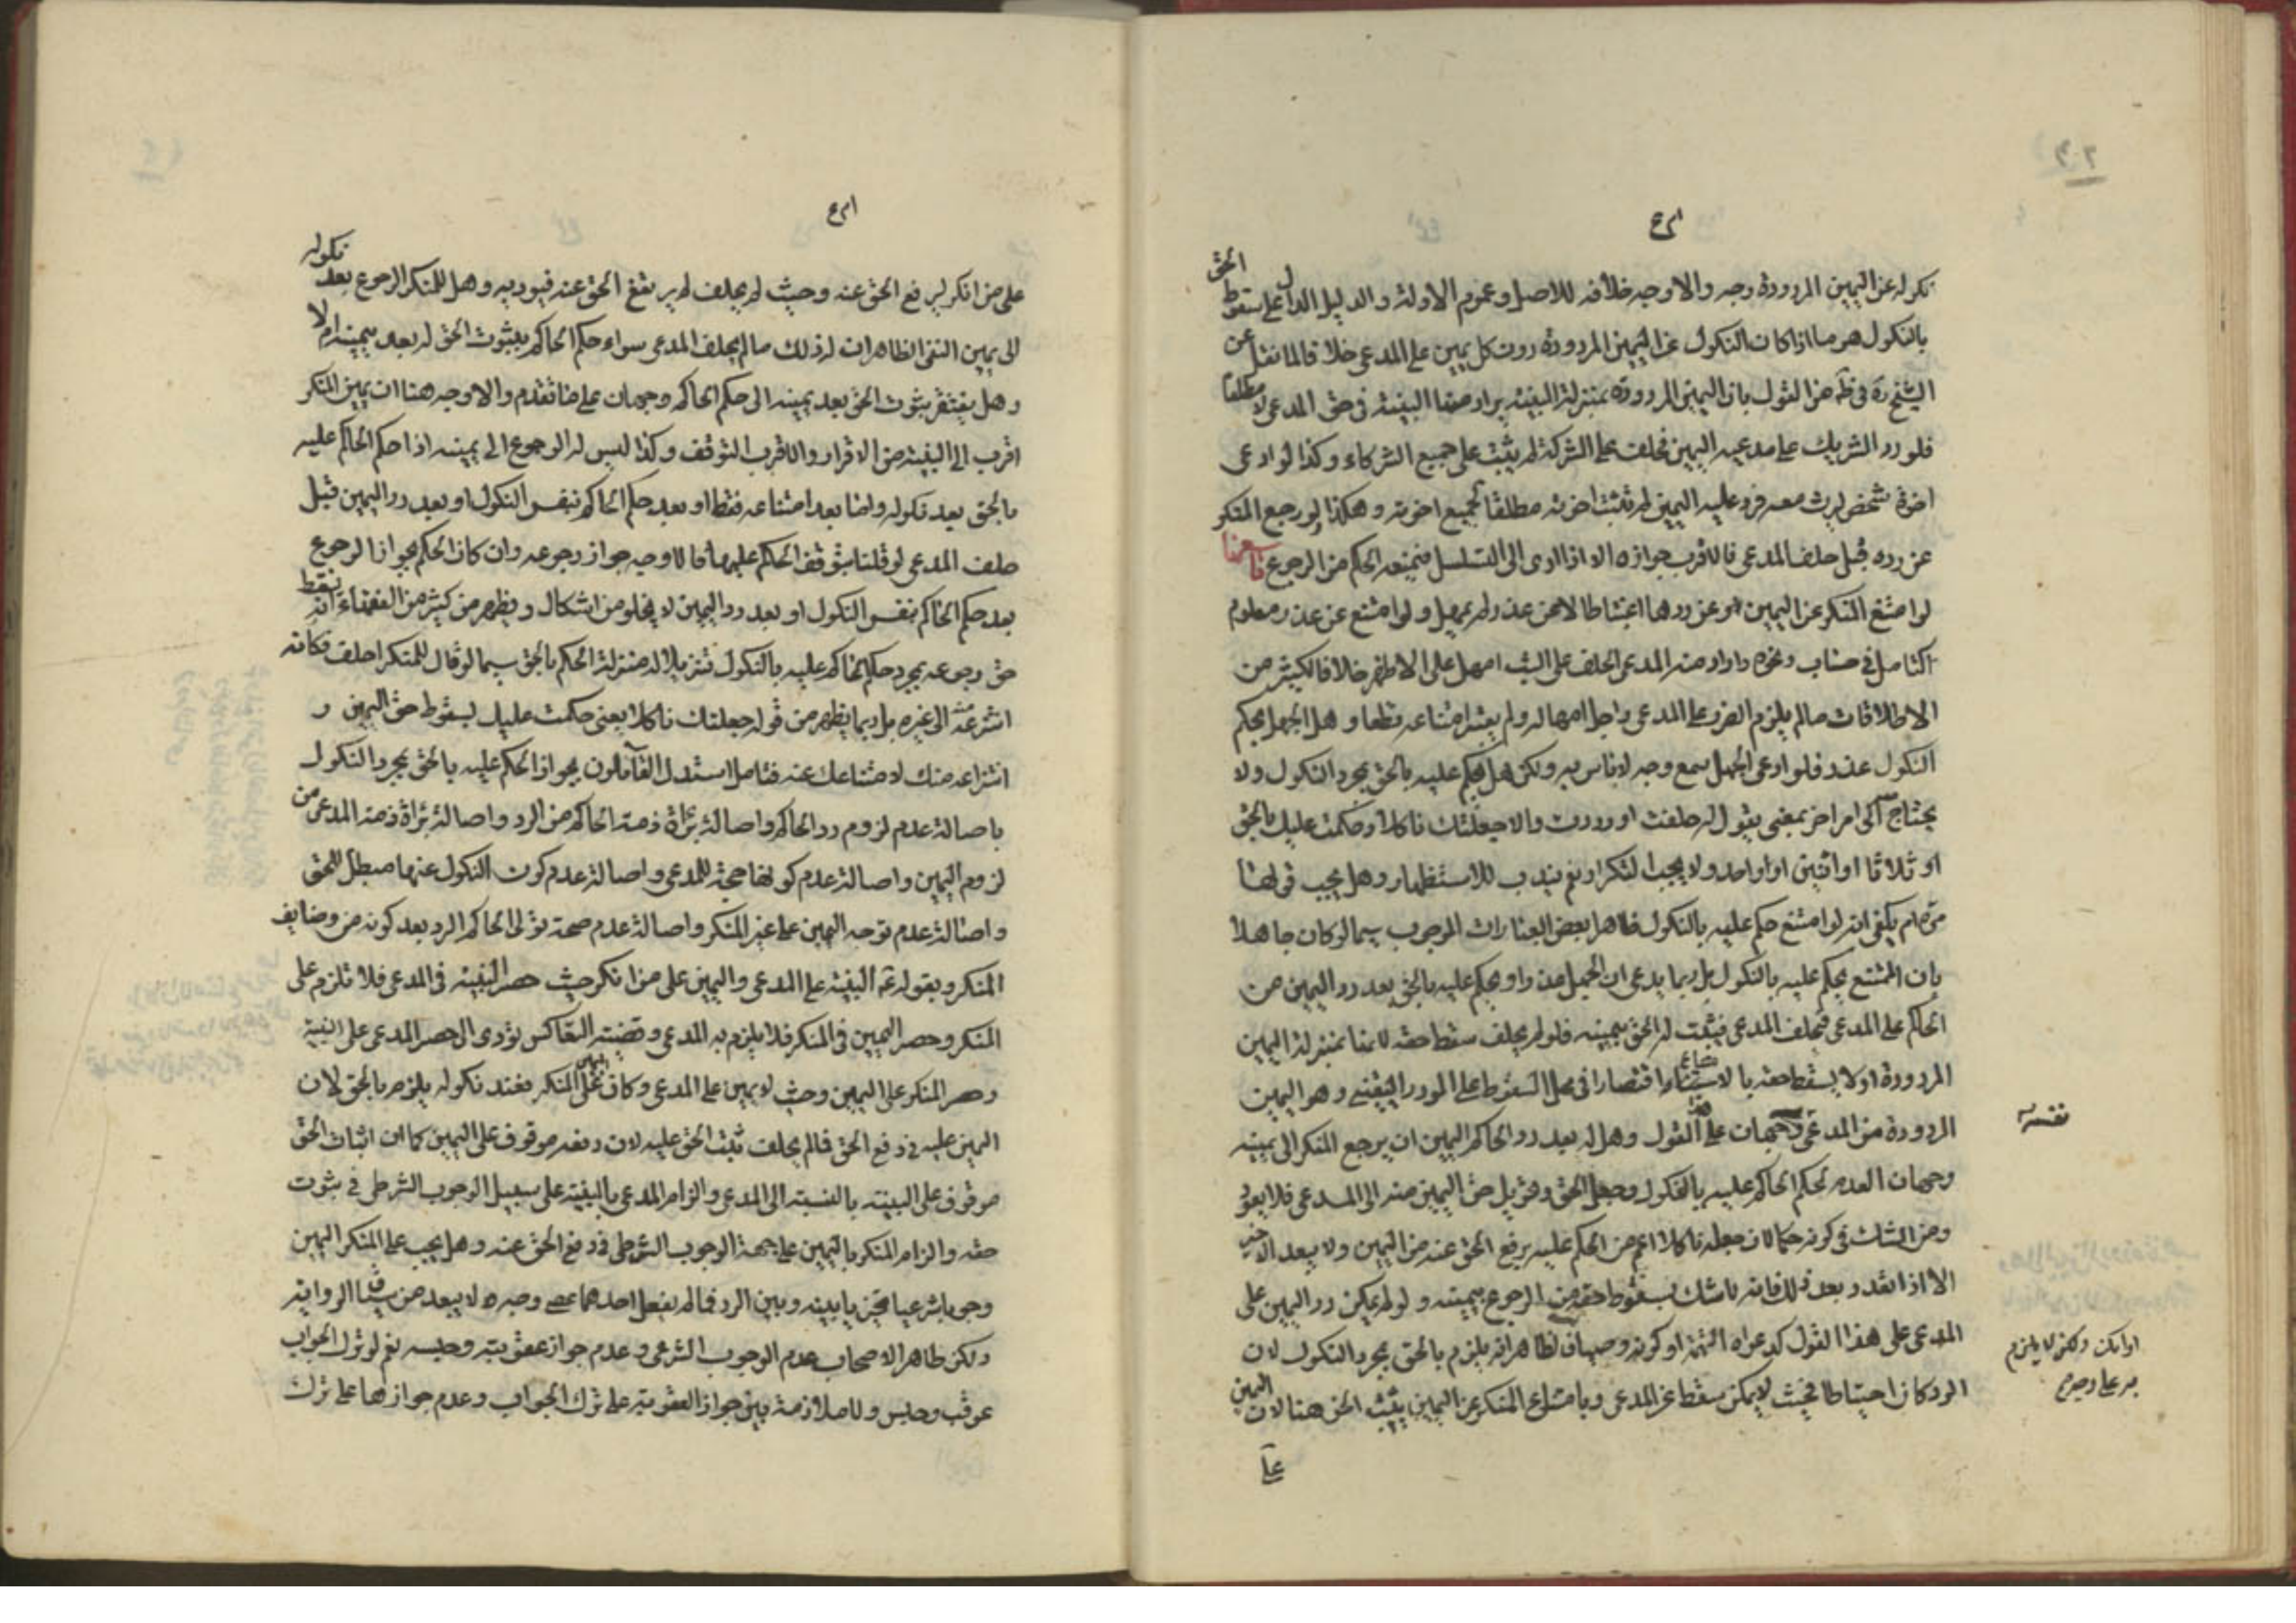 نكوله عن اليمين المردودة وجه والاوجه خلافه للاصل وعموم الادلة والدليل الدال على سقوط الحق
بالنكول هو ما اذا كان النكول عن اليمين المردودة دون كل يمين على المدعي خلافا لما نقل عن
الشيخ ره في ظه من القول بان اليمين المردودة بمنزلة البينة يراد منها البينة في حق المدعي لا مطلقا
فلو رد الشريك على مدعيه اليمين فحلف على الشركة لم يثبت على جميع الشركاء وكذا لو ادعى
اخوة شخص ليرث معه فرد عليه اليمين لم تثبت اخوته مطلقا لجميع اخوته وهكذا ولو رجع المنكر
عن رده قبل حلف المدعي فالاقرب جوازه الا اذا ادى الى التسلسل فيمنعه الحكم من الرجوع
لو امتنع المنكر عن اليمين او عن ردها اعتباطا لا عن عذر لم يمهل ولو امتنع عن عذر معلوم
كتامل في حساب ونحوه واراد منه المدعي الحلف على البت امهل على الاظهر خلافا لكثير من
الاطلاقات ما لم يلزم الضرر على المدعي باجل امهاله ولم يعتبر امتناعه قطعا وهل الجهل بحكم
النكول عذر فلو ادعى الجهل سمع وجه لا باس به ولكن هل يحكم عليه بالحق بمجرد النكول ولا
يحتاج الى امر اخر بمعنى يقول له حلفت او رددت والا جعلتك ناكلا وحكمت عليك بالحق
او ثلاثا او اثنين او واحد ولا يجب التكرار نعم يندب للاستظهار وهل يجب قولها
مرة ام يكفي انه لو امتنع حكم عليه بالنكول ظاهر بعض العبارات الوجوب سيما لو كان جاهلا
بان الممتنع يحكم عليه بالنكول بل ربما يدعى ان الجهل عذر او يحكم عليه بالحق بعد رد اليمين من
الحاكم على المدعي فيحلف المدعي فيثبت له الحق بيمينه فلو لم يحلف سقط حقه لانها بمنزلة اليمين
المردودة اولا يسقط حقه بالامتناع اقتصارا في محل السقوط على المورد اليقيني وهو اليمين
المردودة من المدعى وجهان على القول وهل له بعد رد الحاكم اليمين ان يرجع المنكر الى يمينه نفسه
وجهان العدم لحكم الحاكم عليه بالنكول وجعل الحق وتحويل حق اليمين منه الى المدعي فلا يعود
ومن الشك في كونه حكما لان جعله ناكلا اعم من الحكم عليه برفع الحق عنه من اليمين ولا يبعد الاخير
الا اذا تعذر بعد ذلك فانه لا شك بسقوط حقه من الرجوع بيمينه ولو لم يمكن رد اليمين على
المدعي على هذا القول كدعواه التهمة او كونه وصيا فالظاهر انه يلزم بالحق بمجرد النكول لان
الرد كان احتياطا فحيث لا يمكن سقط عن المدعي وبامتناع المنكر عن اليمين يثبت الحق هنا لان اليمين
او امكن ولكن لا يلزم
به على وجه
على
على من انكر ليرفع الحق عنه وحيث لم يحلف لم يرتفع الحق عنه فيؤديه وهل للمنكر الرجوع بعد نكوله
الى يمين النفي الظاهر ان له ذلك ما لم يحلف المدعي سواء حكم الحاكم بثبوت الحق له بعد يمينه ام لا
وهل يفتقر بثبوت الحق بعد يمينه الى حكم الحاكم وجهان على ما تقدم والاوجه هنا ان يمين المنكر
اقرب الى البينة من الاقرار والاقرب التوقف وكذا ليس له الرجوع الى يمينه اذا حكم الحاكم عليه
بالحق بعد نكوله واما بعد امتناعه فقط او بعد حكم الحاكم بنفس النكول او بعد رد اليمين قبل
حلف المدعي لو قلنا بتوقف الحكم عليها فالاوجه جواز رجوعه وان كان الحكم بجواز الرجوع
بعد حكم الحاكم بنفس النكول او بعد رد اليمين لا يخلو من اشكال ويظهر من كثير من الفقهاء انه يسقط
حق رجوعه بمجرد حكم الحاكم عليه بالنكول تنزيلا له منزلة الحكم بالحق سيما لو قال للمنكر احلف فكانه
انتزعه منه الى غيره بل ربما يظهر من قوله جعلتك ناكلا يعني حكمت عليك بسقوط حق اليمين و
انتزاعه منك لامتناعك عنه فتامل استدل القائلون بجواز الحكم عليه بالحق بمجرد النكول
باصالة عدم لزوم رد الحاكم واصالة براءة ذمة الحاكم من الرد واصالة براءة ذمة المدعي من
لزوم اليمين واصالة عدم كونها حجة للمدعي واصالة عدم كون النكول عنها مبطل للحق
واصالة عدم توجه اليمين على غير المنكر واصالة عدم صحة تولي الحاكم الرد بعد كونه من وضايف
المنكر وبقوله عم البينة على المدعي واليمين على من انكر حيث حصر البينة في المدعي فلا تلزم على
المنكر وحصر اليمين في المنكر فلا يلزم به المدعي وقضية التعاكس تؤدى الى حصر المدعي على البينة
وحصر المنكر على اليمين وحيث لا يمين على المدعي وكان اليمين على المنكر فعند نكوله يلزم بالحق لان
اليمين عليه في دفع الحق فما لم يحلف يثبت الحق عليه لان دفعه موقوف على اليمين كما ان اثبات الحق
موقوف على البينة بالنسبة الى المدعي والزام المدعي بالبينة على سبيل الوجوب الشرطي في ثبوت
حقه والزام المنكر باليمين على جهة الوجوب الشرطي في دفع الحق عنه وهل يجب على المنكر اليمين
وجوبا شرعيا مخيرا بينه وبين الرد فما لم يفعل احدهما عصى وجبره لا يبعد من سياق الرواية
ولكن ظاهر الاصحاب عدم الوجوب الشرعي وعدم جواز عقوبته وحبسه نعم لو ترك الجواب
عوقب وحبس ولا ملازمة بين جواز العقوبة على ترك الجواب وعدم جوازها على ترك